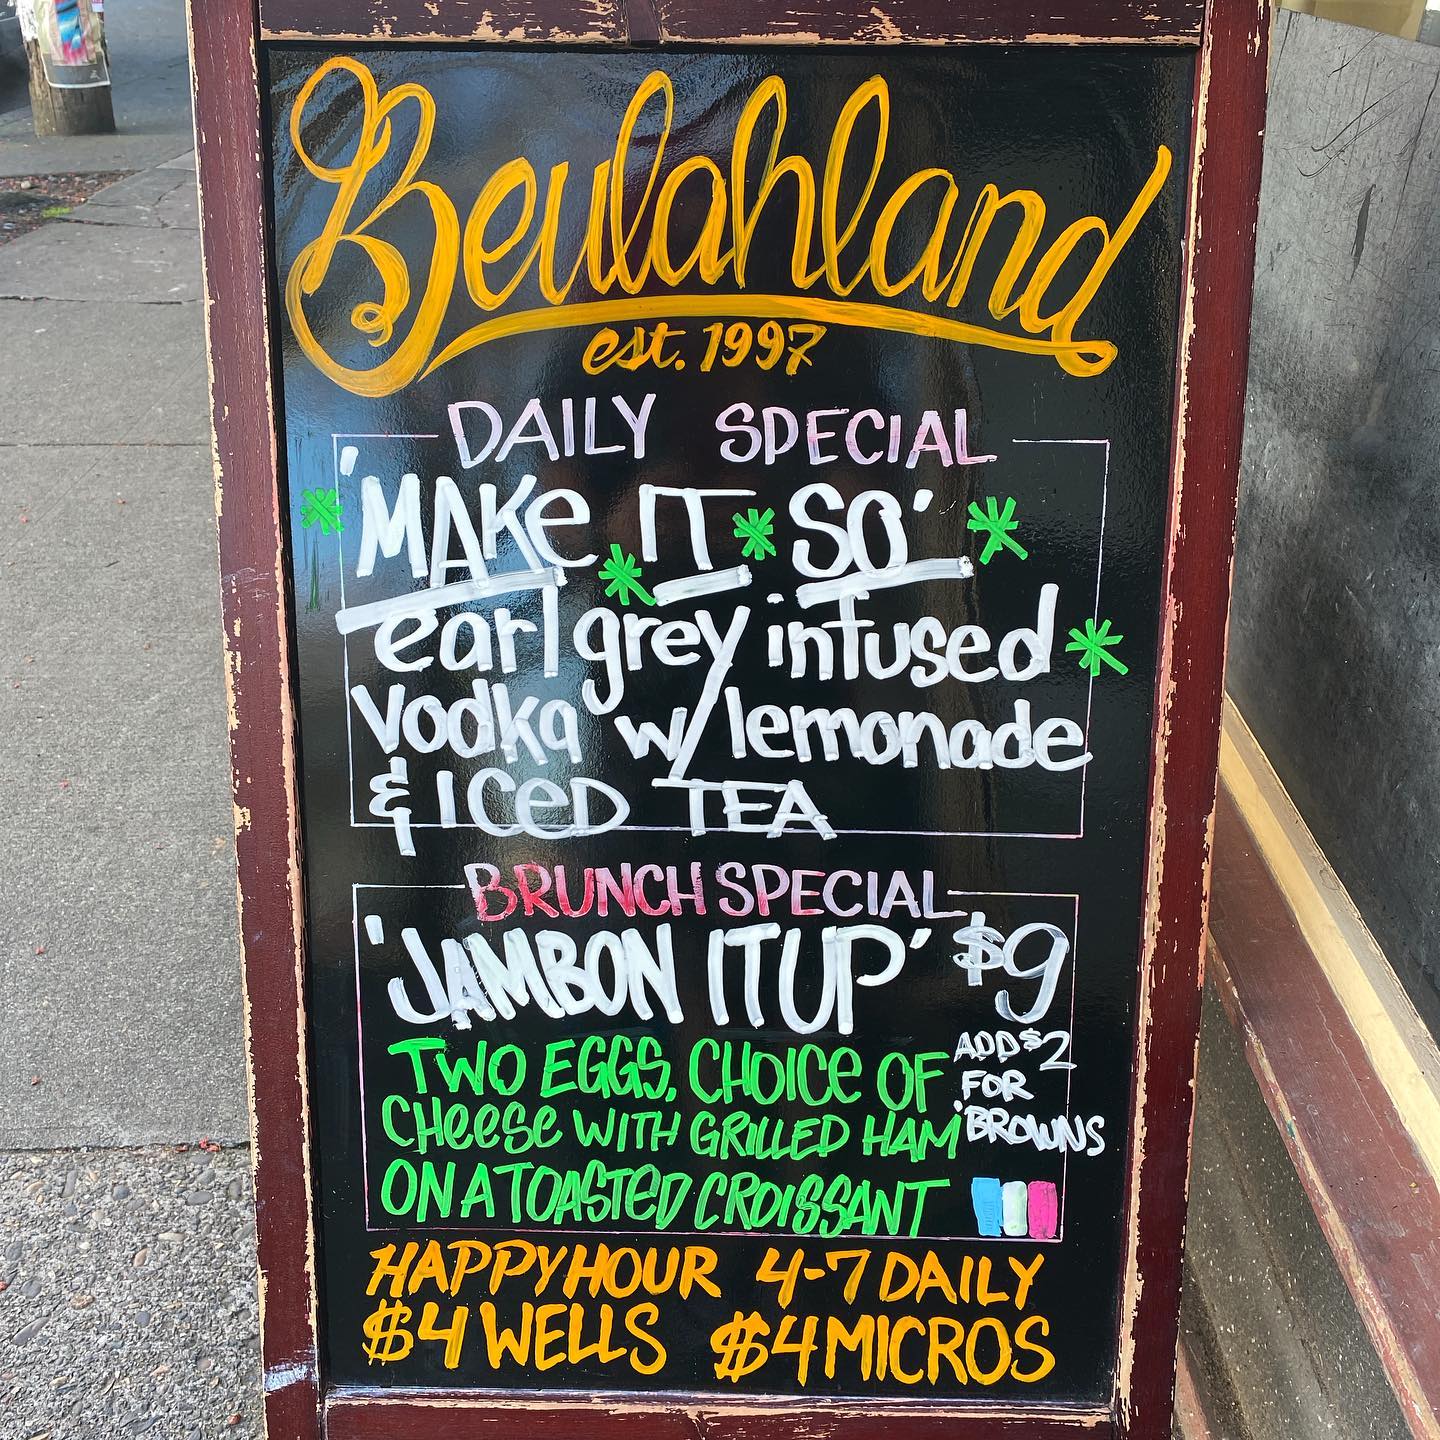 Beulahland
est. 1997
DAILY SPECIAL
'MAKE IT SO'
earl grey infused
vodka w/ lemonade
& ICED TEA
BRUNCH SPECIAL
'JAMBON IT UP' $9
TWO EGGS, CHOICE OF
CHEESE WITH GRILLED HAM
ON A TOASTED CROISSANT
ADD $2
FOR
BROWNS
HAPPY HOUR 4-7 DAILY
$4 WELLS $4 MICROS